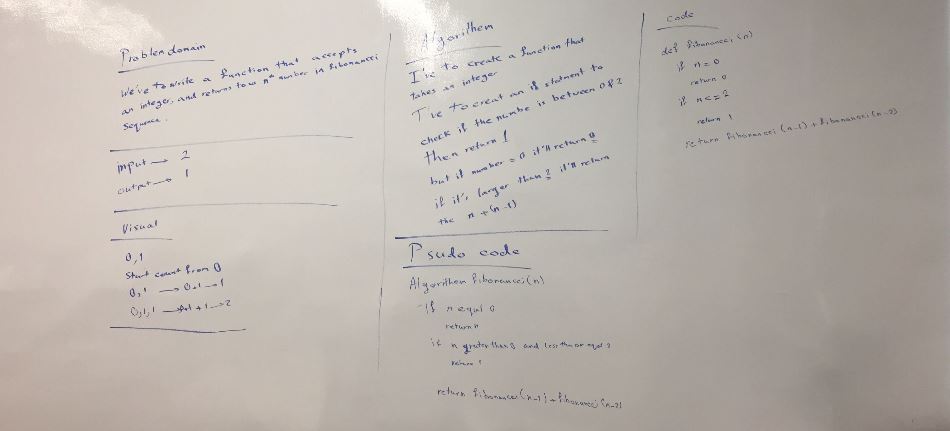 Problem domain
We've to write a function that accepts
an integer, and returns to us nth number in fibonancci
Sequence.
input → 2
output → 1
Visual
0,1
Start count from 0
0,1 → 0+1 → 1
0,1,1 → 1 + 1 → 2
Algorithem
I've to create a function that
takes an integer
I've to creat an if statment to
check if the numbe is between 0 & 2
then return 1
but if number = 0 it'll return 0
if it's larger than 2 it'll return
the n + (n-1)
Psudo code
Algorithem fibonancci(n)
if n equal 0
return n
if n greater than 0 and less than or equal 2
return 1
return fibonancci(n-1) + fibonancci(n-2)
Code
def fibonancci(n)
if n = 0
return 0
if n <= 2
return 1
return fibonancci(n-1) + fibonancci(n-2)